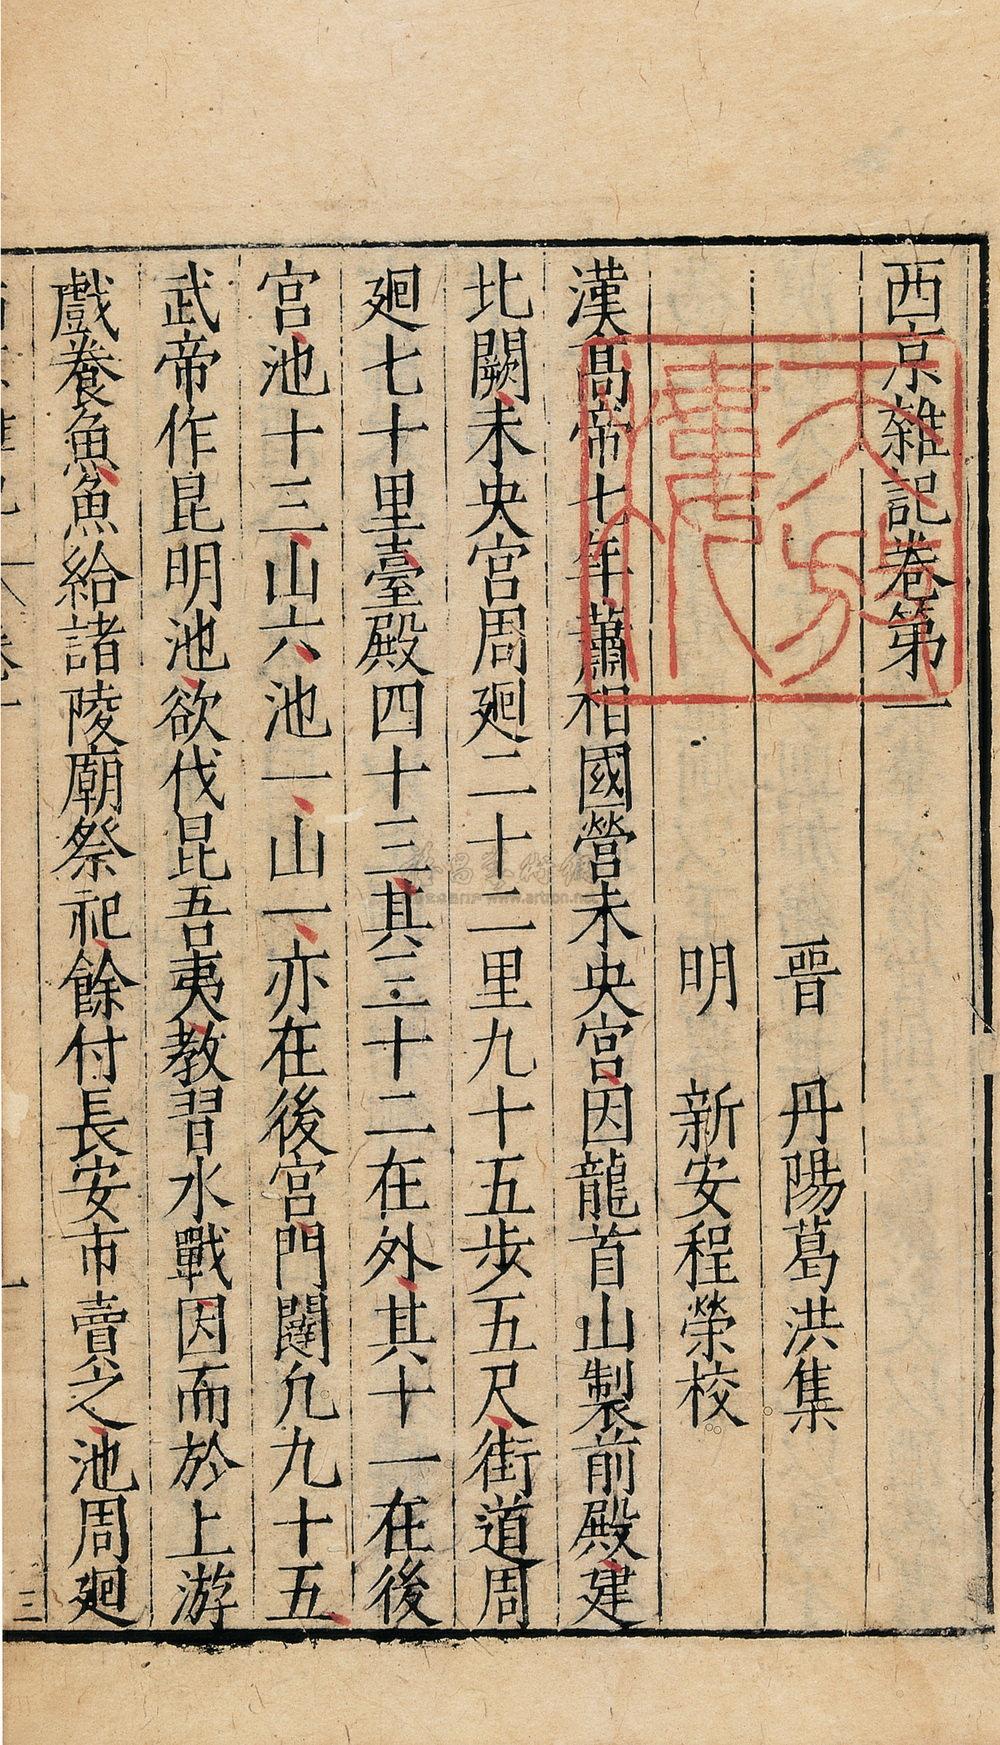 西京雜記卷第一
晉 丹陽葛洪集
明 新安程榮校
漢高帝七年蕭相國營未央宮因龍首山製前殿建
北闕未央宮周廻二十二里九十五步五尺街道周
廻七十里臺殿四十三其三十二在外其十一在後
宮池十三山六池一山一亦在後宮門闥凢九十五
武帝作昆明池欲伐昆吾夷教習水戰因而於上游
戲養魚魚給諸陵廟祭祀餘付長安市賣之池周廻